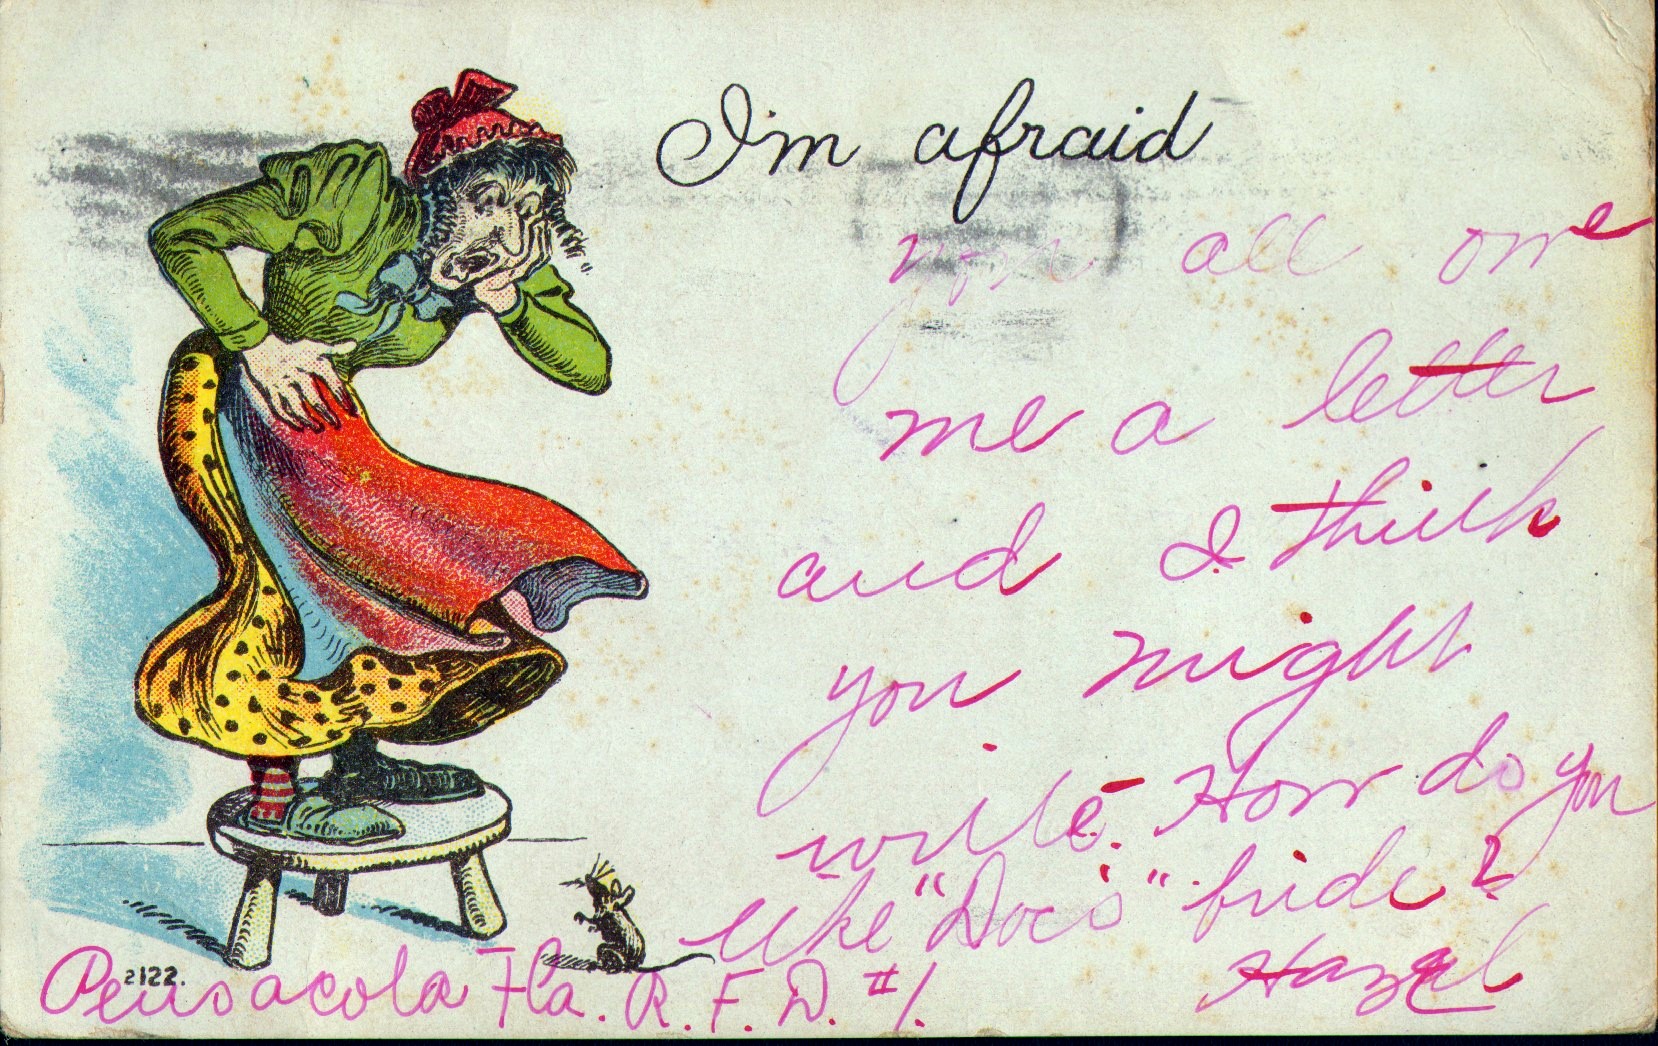 I'm afraid
you all owe
me a letter
and I think
you might
write. How do you
like "Doc's" bride?
Hazel
2122.
Pensacola Fla. R. F. D. #1.